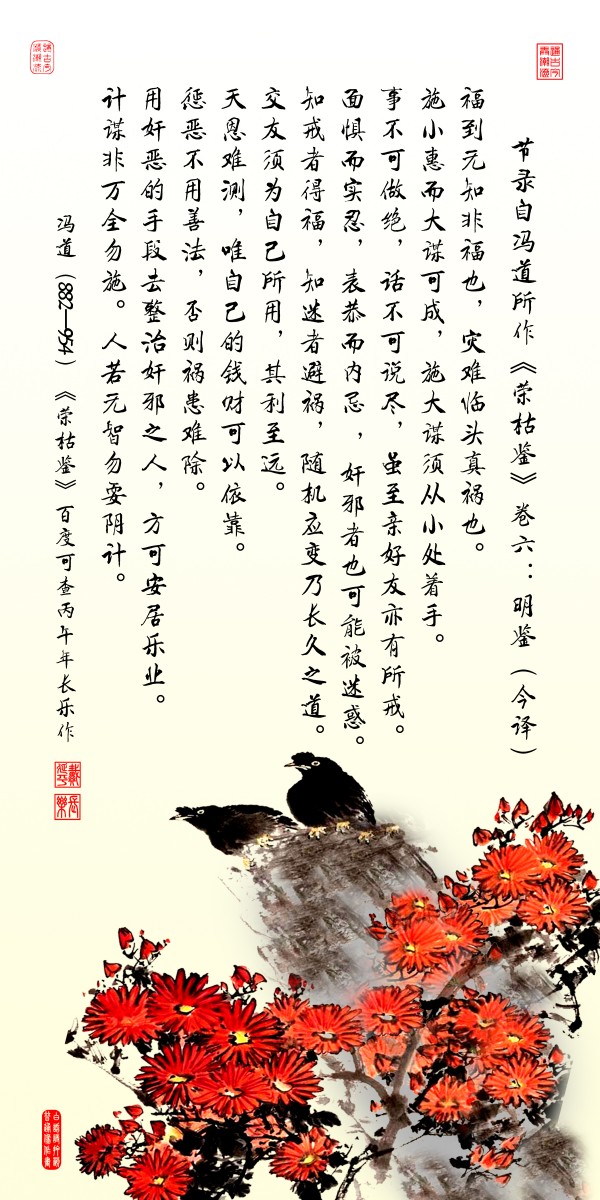 节录自冯道所作《荣枯鉴》卷六：明鉴（今译）
福到无知非福也，灾难临头真祸也。
施小惠而大谋可成，施大谋须从小处着手。
事不可做绝，话不可说尽，虽至亲好友亦有所戒。
面惧而实忍，表恭而内忌，奸邪者也可能被迷惑。
知戒者得福，知迷者避祸，随机应变乃长久之道。
交友须为自己所用，其利至远。
天恩难测，唯自己的钱财可以依靠。
惩恶不用善法，否则祸患难除。
用奸恶的手段去整治奸邪之人，方可安居乐业。
计谋非万全勿施。人若无智勿耍阴计。
冯道（882—954）《荣枯鉴》百度可查丙午年长乐作